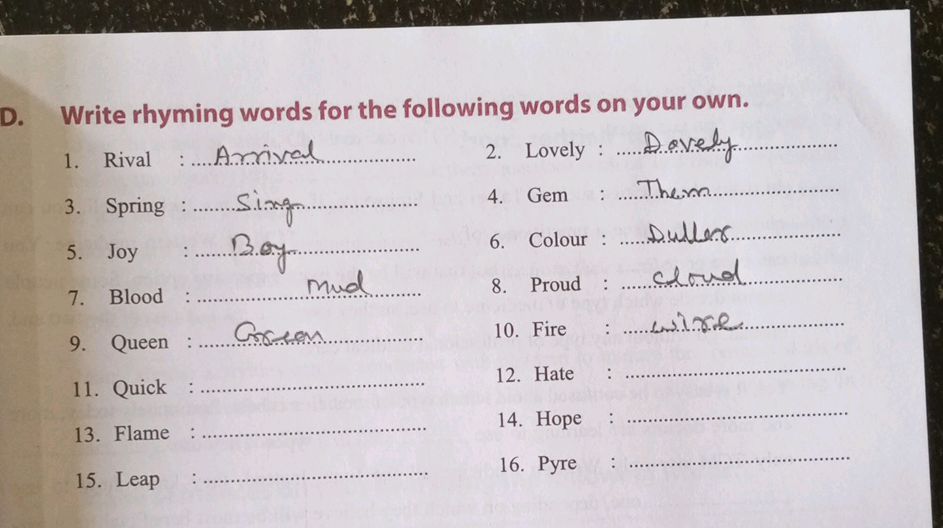 D. Write rhyming words for the following words on your own.
1. Rival : Arrival 2. Lovely : Dovely
3. Spring : Sing 4. Gem : Them
5. Joy : Boy 6. Colour : Duller
7. Blood : mud 8. Proud : cloud
9. Queen : Green 10. Fire : wire
11. Quick : 12. Hate :
13. Flame : 14. Hope :
15. Leap : 16. Pyre :